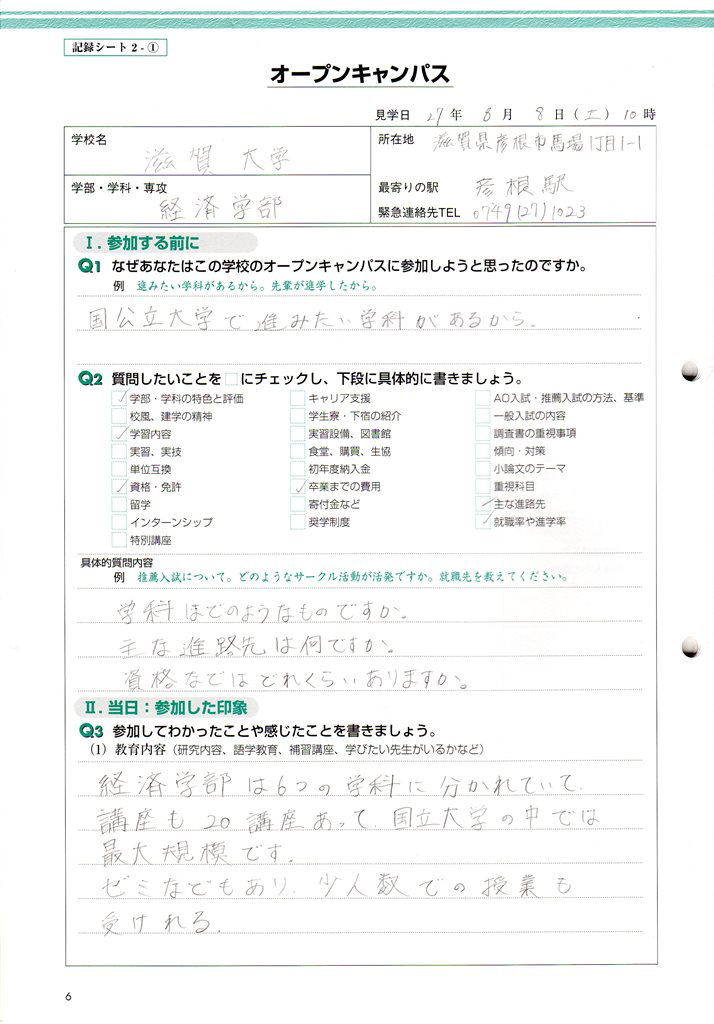 記録シート2-①
オープンキャンパス
見学日 27年 8月 8日(土) 10時
学校名
滋賀 大学
所在地 滋賀県彦根市馬場1丁目1-1
学部・学科・専攻
経済学部
最寄りの駅 彦根駅
緊急連絡先TEL 0749(27)1023
Ⅰ.参加する前に
Q1 なぜあなたはこの学校のオープンキャンパスに参加しようと思ったのですか。
例 進みたい学科があるから。先輩が進学したから。
国公立大学で進みたい学科があるから。
Q2 質問したいことを□にチェックし、下段に具体的に書きましょう。
✓学部・学科の特色と評価 □キャリア支援 □AO入試・推薦入試の方法、基準
□校風、建学の精神 □学生寮・下宿の紹介 □一般入試の内容
✓学習内容 □実習設備、図書館 □調査書の重視事項
□実習、実技 □食堂、購買、生協 □傾向・対策
□単位互換 □初年度納入金 □小論文のテーマ
✓資格・免許 ✓卒業までの費用 □重視科目
□留学 □寄付金など ✓主な進路先
□インターンシップ □奨学制度 ✓就職率や進学率
□特別講座
具体的質問内容
例 推薦入試について。どのようなサークル活動が活発ですか。就職先を教えてください。
学科はどのようなものですか。
主な進路先は何ですか。
資格などはどれくらいありますか。
Ⅱ.当日:参加した印象
Q3 参加してわかったことや感じたことを書きましょう。
(1) 教育内容(研究内容、語学教育、補習講座、学びたい先生がいるかなど)
経済学部は6つの学科に分かれていて、
講座も20講座あって、国立大学の中では
最大規模です。
ゼミなどもあり、少人数での授業も
受けれる。
6